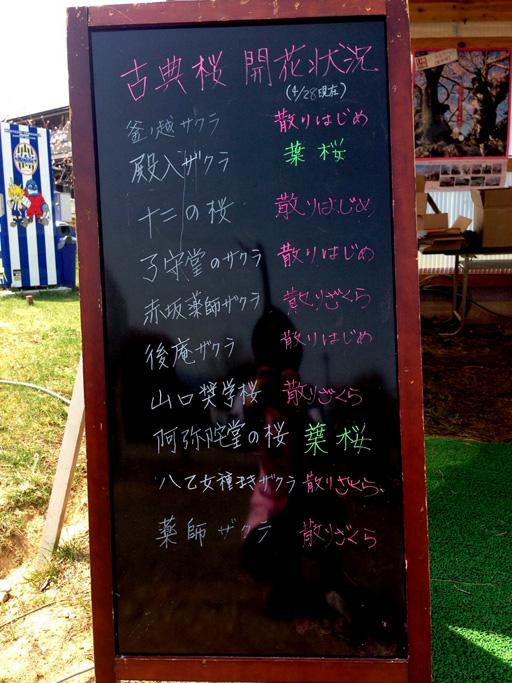 古典桜 開花状況
(4/28現在)
釜ノ越ザクラ 散りはじめ
殿入ザクラ 葉桜
十二の桜 散りはじめ
子守堂のザクラ 散りはじめ
赤坂薬師ザクラ 散りざくら
後庵ザクラ 散りはじめ
山口奨学桜 散りざくら
阿弥陀堂の桜 葉桜
八乙女種まきザクラ 散りざくら
薬師ザクラ 散りざくら